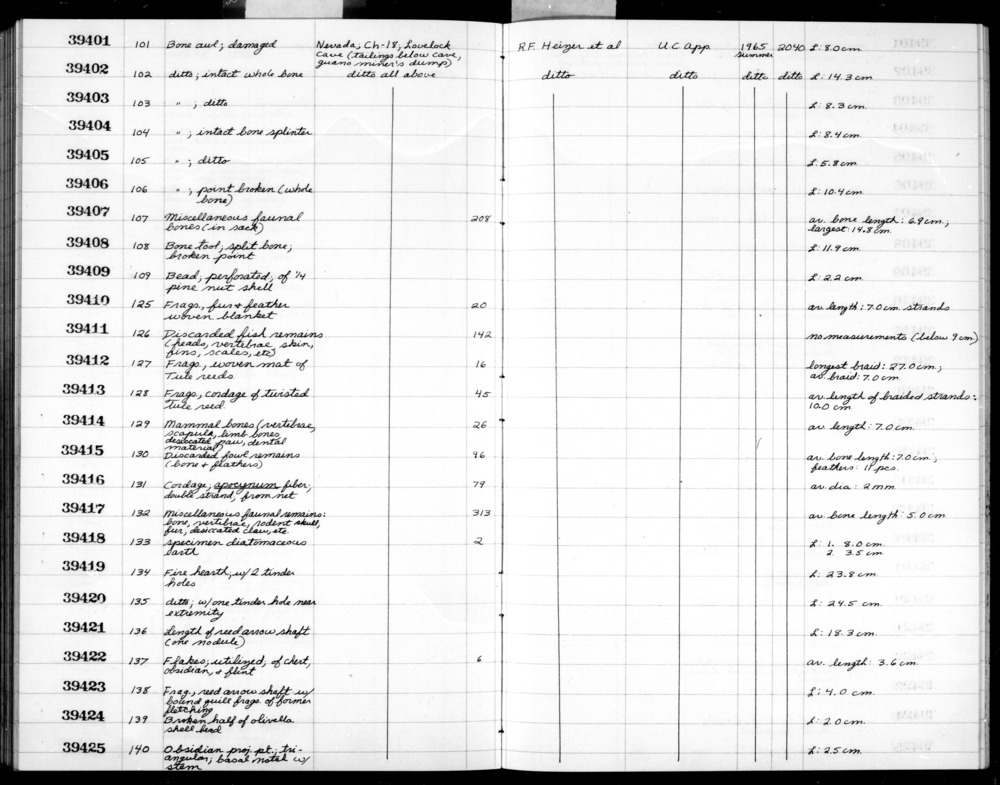 39401 101 Bone awl; damaged Nevada, Ch-18, Lovelock R.F. Heizer et al U.C. App. 1965 2040 L: 8.0 cm
Cave (tailings below cave, summer
guano miner's dump)
39402 102 ditto; intact whole bone ditto all above ditto ditto ditto ditto L: 14.3 cm
39403 103 " ; ditto L: 8.3 cm.
39404 104 " ; intact bone splinter L: 8.4 cm.
39405 105 " ; ditto L: 5.8 cm
39406 106 " ; point broken (whole L: 10.4 cm.
bone)
39407 107 Miscellaneous faunal 208 av. bone length: 6.9 cm.;
bones (in sack) largest: 14.8 cm.
39408 108 Bone tool; split bone; L: 11.9 cm.
broken point
39409 109 Bead; perforated; of 1/4 L: 2.2 cm.
pine nut shell
39410 125 Frags., fur + feather 20 av. length: 7.0 cm strands
woven blanket
39411 126 Discarded fish remains 142 no measurements (below 9 cm)
(heads, vertebrae, skin,
fins, scales, etc)
39412 127 Frags., woven mat of 16 longest braid: 27.0 cm.;
Tule reeds. av. braid: 7.0 cm.
39413 128 Frags, cordage of twisted 45 av. length of braided strands:
Tule reed. 10.0 cm
39414 129 Mammal bones (vertebrae, 26 av. length: 7.0 cm.
scapula, limb bones,
desiccated paw, dental
material)
39415 130 Discarded fowl remains 96 av. bone length: 7.0 cm.;
(bone + feathers) feathers: 11 pcs.
39416 131 Cordage, apocynum fiber; 79 av. dia: 2 mm
double strand, from net
39417 132 Miscellaneous faunal remains: 313 av. bone length: 5.0 cm
bone, vertebrae, rodent skull,
fur, desiccated claw, etc.
39418 133 specimen diatomaceous 2 L: 1. 8.0 cm.
earth 2. 3.5 cm
39419 134 Fire hearth, w/ 2 tinder L: 23.8 cm.
holes
39420 135 ditto; w/one tinder hole near L: 24.5 cm.
extremity
39421 136 Length of reed arrow shaft L: 18.3 cm.
(one nodule)
39422 137 Flakes; utilized; of chert, 6 av. length: 3.6 cm.
obsidian, + flint
39423 138 Frag., reed arrow shaft w/ L: 4.0 cm.
bound quill frags. of former
fletching
39424 139 Broken half of olivella L: 2.0 cm.
shell bead
39425 140 Obsidian proj. pt.; tri- L: 2.5 cm.
angular; basal notch w/
stem